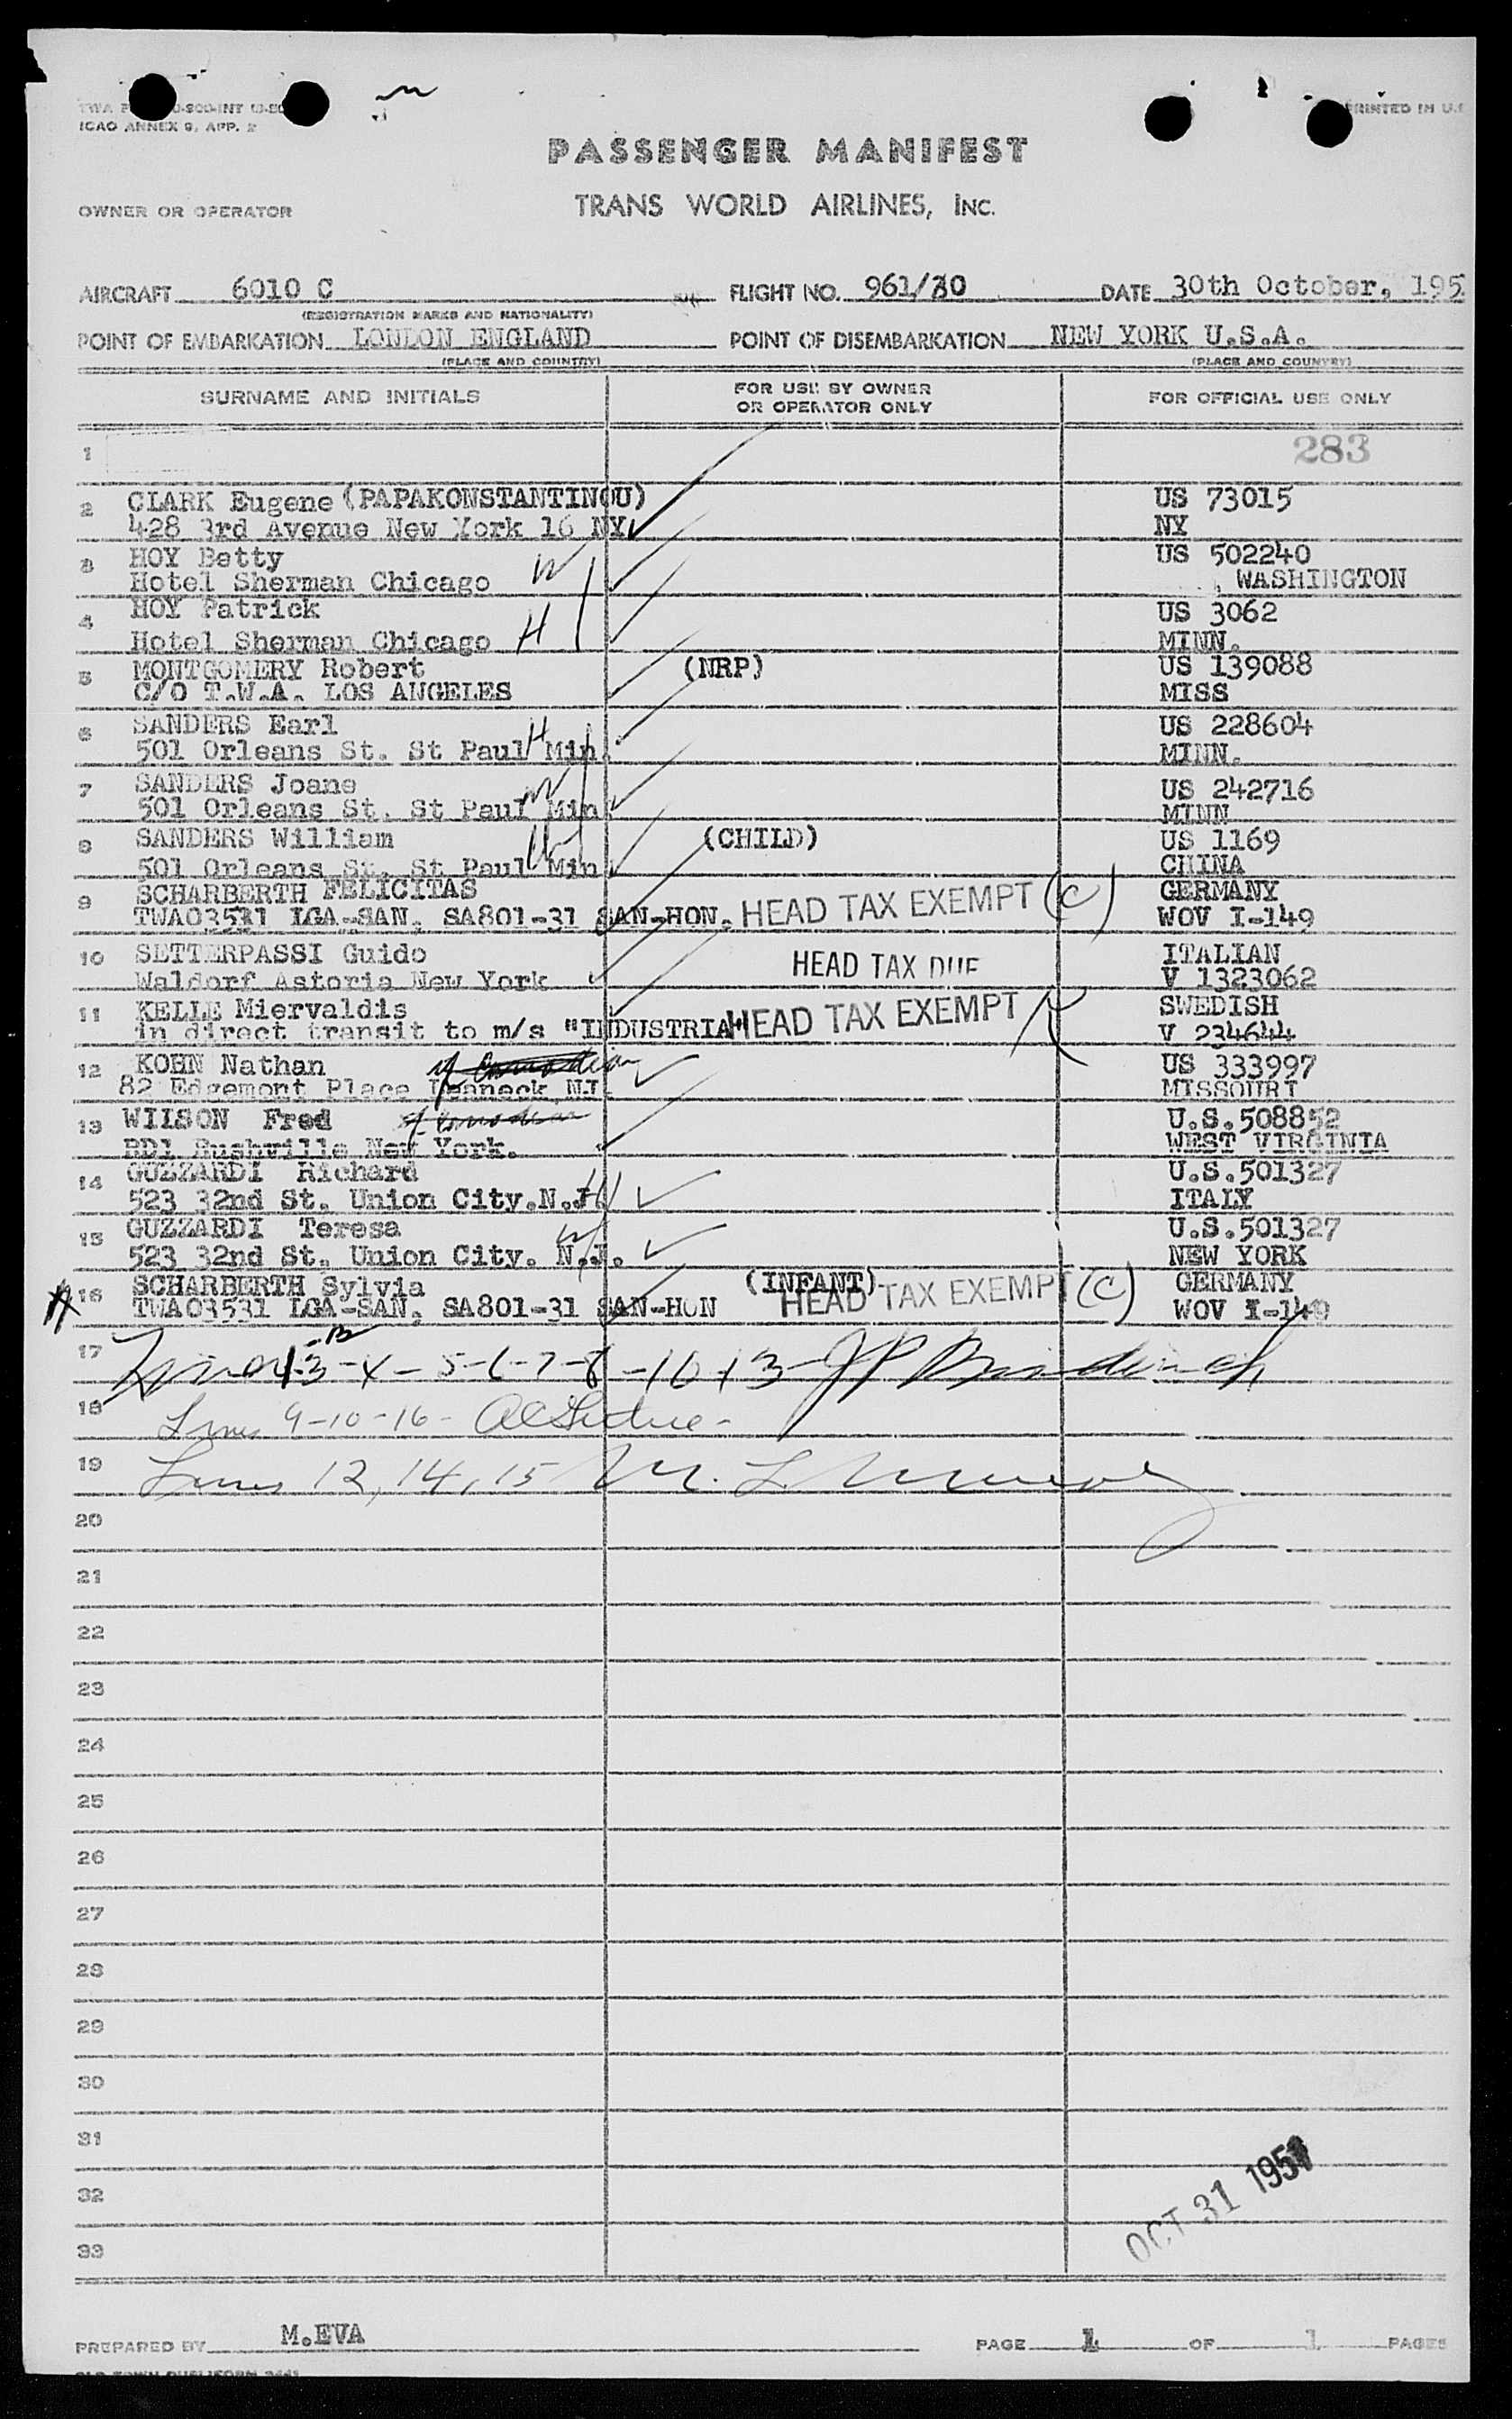 ICAO ANNEX 9, APP. 2
PRINTED IN U.S
PASSENGER MANIFEST
OWNER OR OPERATOR
TRANS WORLD AIRLINES, INC.
AIRCRAFT 6010 C FLIGHT NO. 961/30 DATE 30th October, 195
(REGISTRATION MARKS AND NATIONALITY)
POINT OF EMBARKATION LONDON ENGLAND POINT OF DISEMBARKATION NEW YORK U.S.A.
(PLACE AND COUNTRY) (PLACE AND COUNTRY)
SURNAME AND INITIALS FOR USE BY OWNER OR OPERATOR ONLY FOR OFFICIAL USE ONLY
1 283
2 CLARK Eugene (PAPAKONSTANTINOU) US 73015
428 3rd Avenue New York 16 NY NY
3 HOY Betty US 502240
Hotel Sherman Chicago W WASHINGTON
4 HOY Patrick US 3062
Hotel Sherman Chicago H MINN.
5 MONTGOMERY Robert (NRP) US 139088
C/O T.W.A. LOS ANGELES MISS
6 SANDERS Earl US 228604
501 Orleans St. St Paul Min. H MINN.
7 SANDERS Joane US 242716
501 Orleans St. St Paul Min W MINN
8 SANDERS William (CHILD) US 1169
501 Orleans St. St Paul Min CHINA
9 SCHARBERTH FELICITAS GERMANY
TWA03531 LGA-SAN, SA801-31 SAN-HON. HEAD TAX EXEMPT (C) WOV I-149
10 SETTERPASSI Guido ITALIAN
Waldorf Astoria New York HEAD TAX DUE V 1323062
11 KELLE Miervaldis SWEDISH
in direct transit to m/s "INDUSTRIA" HEAD TAX EXEMPT V 234644
12 KOHN Nathan US 333997
82 Edgemont Place NJ MISSOURI
13 WILSON Fred U.S.508852
RD1 Rushville New York. WEST VIRGINIA
14 GUZZARDI Richard U.S.501327
523 32nd St. Union City.N.J H ITALY
15 GUZZARDI Teresa U.S.501327
523 32nd St. Union City. N.J. W NEW YORK
16 SCHARBERTH Sylvia (INFANT) GERMANY
TWA03531 LGA-SAN, SA801-31 SAN-HON HEAD TAX EXEMPT (C) WOV I-149
17
18 Lines 9-10-16-
19 Lines 12, 14, 15 M. L.
20
21
22
23
24
25
26
27
28
29
30
31
32
33
OCT 31 1951
PREPARED BY M.EVA PAGE 1 OF 1 PAGES